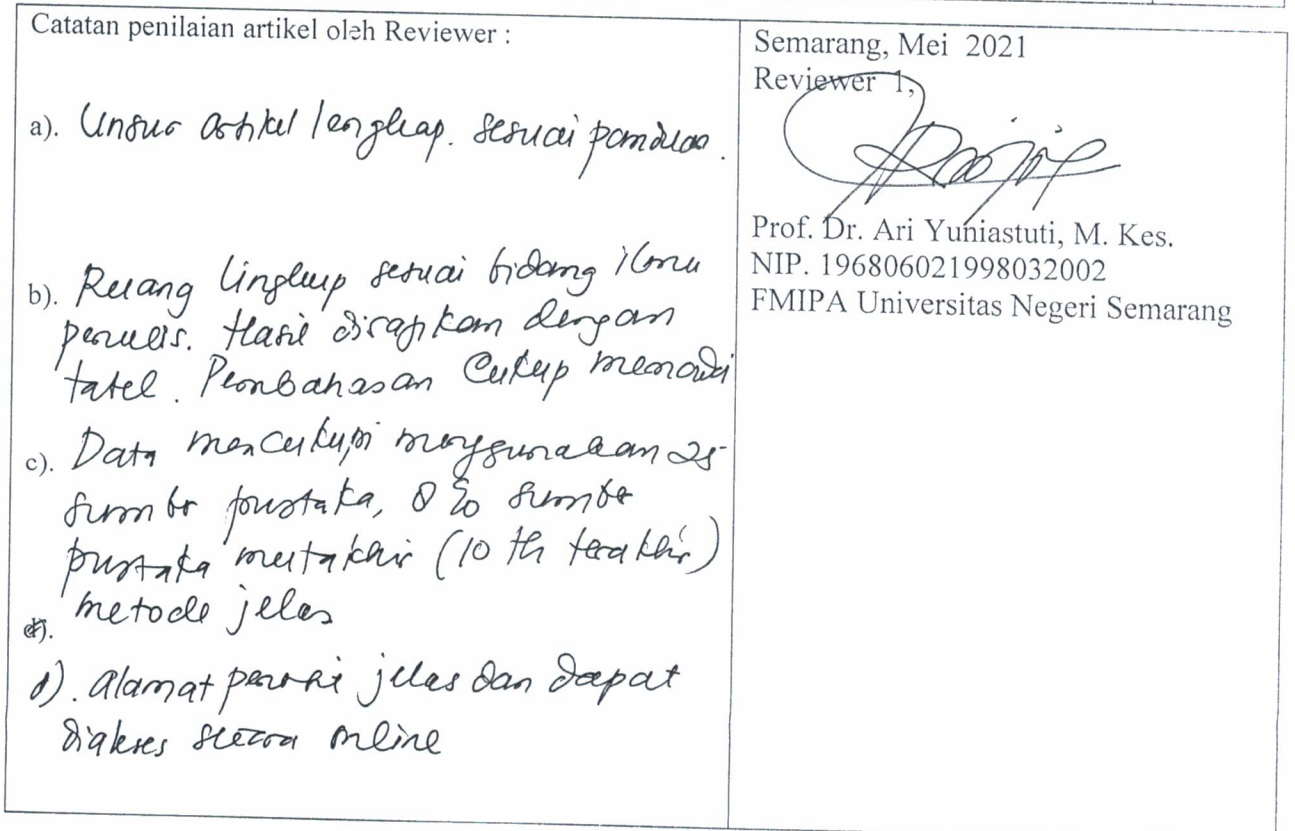 Catatan penilaian artikel oleh Reviewer :
a). Unsur artikel lengkap. sesuai panduan.
b). Ruang lingkup sesuai bidang ilmu
penulis. Hasil disajikan dengan
tabel. Pembahasan Cukup memadai
c). Data mencukupi menggunakan 25
sumber pustaka, 8 % sumber
pustaka mutakhir (10 th terakhir)
metode jelas
d). alamat jelas dan dapat
diakses secara online
Semarang, Mei 2021
Reviewer 1,
Prof. Dr. Ari Yuniastuti, M. Kes.
NIP. 196806021998032002
FMIPA Universitas Negeri Semarang